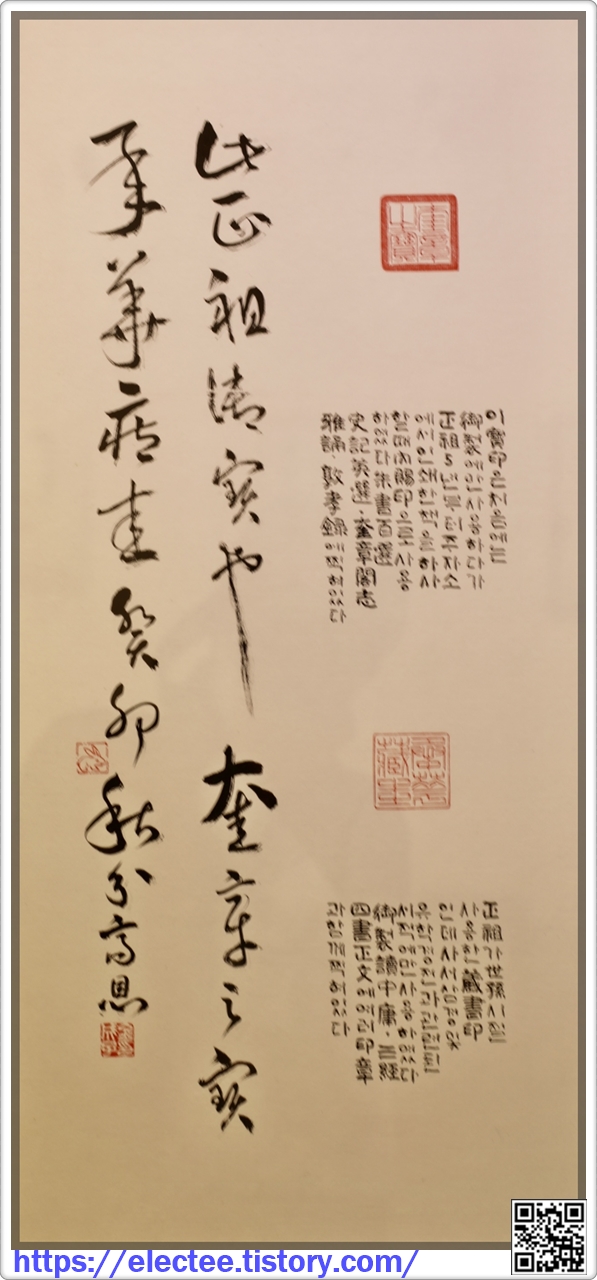 奎章之寶
이 寶印은 처음에는
御製에만 사용하다가
正祖 5년부터 주자소
에서 인쇄한 책을 하사
할때 內賜印으로 사용
하였다 朱書百選
史記英選·奎章閣志
雅誦·敦孝錄에 찍혀있다
承華藏主
正祖가 世孫시절
사용한 藏書印
인데 사서삼경 및
유학경전과 관련된
서적에만 사용하였다
御製讀中庸·三經
四書正文에 여러 印章
과 함께 찍혀있다
此正祖御寶也 奎章之寶
承華藏主 癸卯 秋分 高恩
https://electee.tistory.com/